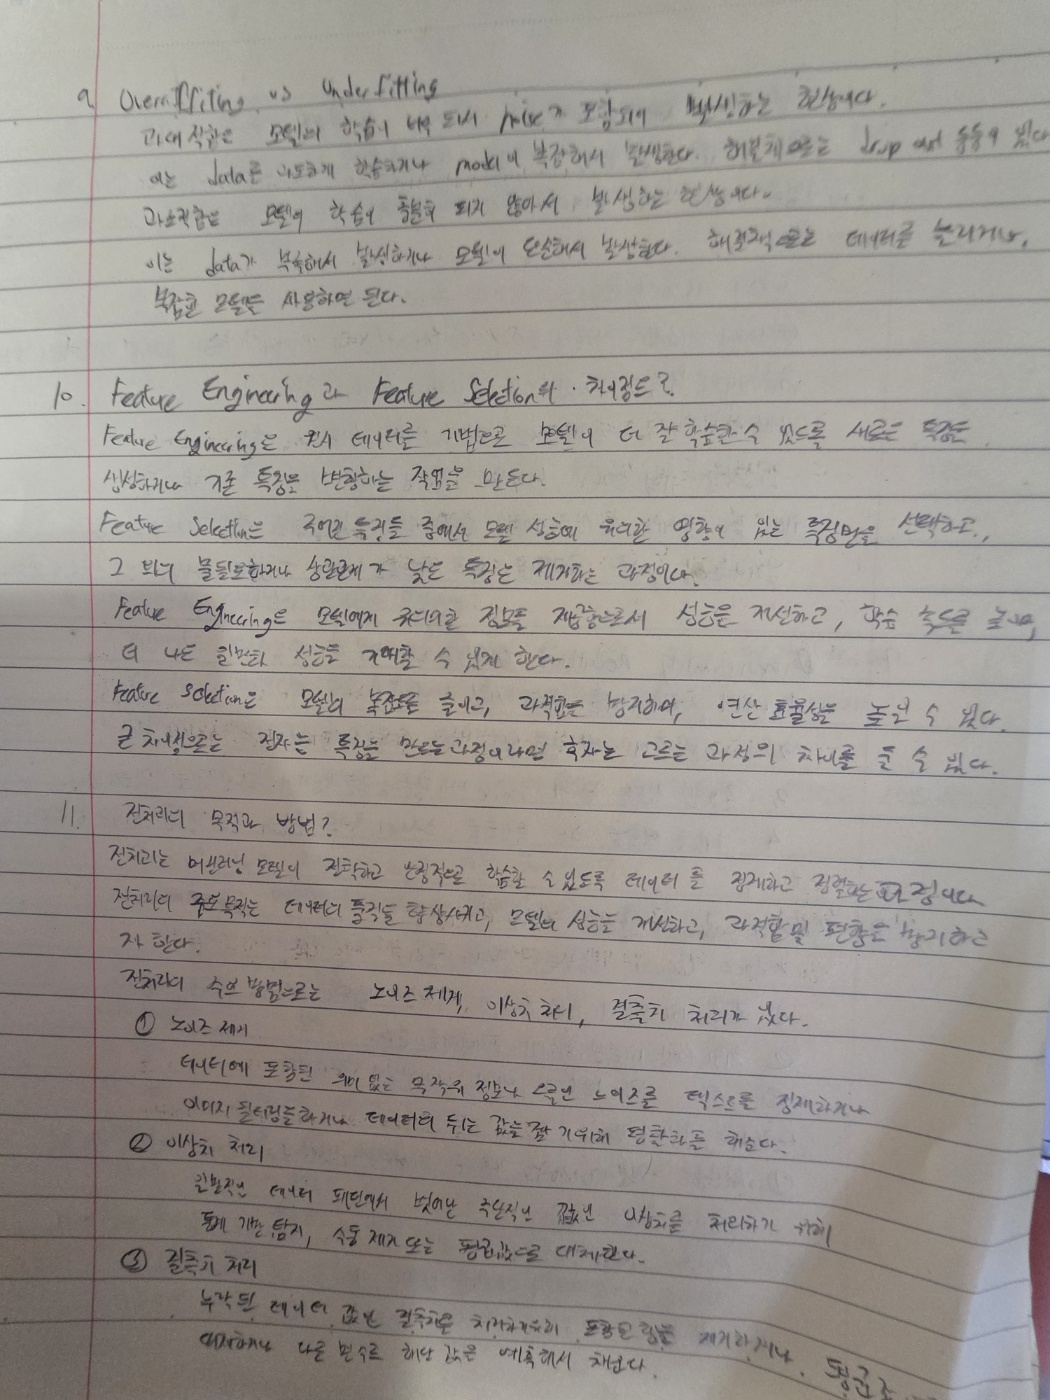 9 Overfitting vs Underfitting
과대적합은 모델의 학습이 너무 되서 noise가 포함되어 발생하는 현상이다.
이는 data를 과도하게 학습하거나 model이 복잡해서 발생한다. 해결책으로는 drop out 등등이 있다
과소적합은 모델이 학습이 충분히 되지 않아서 발생하는 현상이다.
이는 data가 부족해서 발생하거나 모델이 단순해서 발생한다. 해결책으로는 데이터를 늘리거나,
복잡한 모델을 사용하면 된다.
10. Feature Engineering과 Feature Selection의 차이점은?
Feature Engineering은 원시 데이터를 기법으로 모델이 더 잘 학습할 수 있도록 새로운 특징을
생성하거나 기존 특징을 변형하는 작업을 만든다.
Feature Selection은 주어진 특징들 중에서 모델 성능에 유의한 영향이 있는 특징만을 선택하고,
그 외의 불필요하거나 상관관계가 낮은 특징은 제거하는 과정이다.
Feature Engineering은 모델에게 유의미한 정보를 제공함으로서 성능을 개선하고, 학습 속도를 높이며,
더 나은 일반화 성능을 기대할 수 있게 한다.
Feature Selection은 모델의 복잡도를 줄이고, 과적합을 방지하며, 연산 효율성을 높일 수 있다.
큰 차이점으로는 전자는 특징을 만드는 과정이라면 후자는 고르는 과정의 차이를 둘 수 있다.
11. 전처리의 목적과 방법?
전처리는 머신러닝 모델이 정확하고 안정적으로 학습할 수 있도록 데이터를 정제하고 정렬하는 과정이다
전처리의 주요 목적은 데이터의 품질을 향상시키고, 모델의 성능을 개선하고, 과적합 및 편향을 방지하고
자 한다.
전처리의 주요 방법으로는 노이즈 제거, 이상치 처리, 결측치 처리가 있다.
① 노이즈 제거
데이터에 포함된 의미 없는 무작위 정보나 오류인 노이즈를 텍스트를 정제하거나
이미지 필터링을 하거나 데이터의 튀는 값을 잡기 위해 평활화를 해준다.
② 이상치 처리
일반적인 데이터 패턴에서 벗어난 극단적인 값인 이상치를 처리하기 위해
통계 기반 탐지, 수동 제거 또는 평균값으로 대체한다.
③ 결측치 처리
누락된 데이터 값인 결측치를 처리하기 위해 포함된 행을 제거하거나, 평균
대체하거나 다른 변수로 해당 값을 예측해서 채운다.